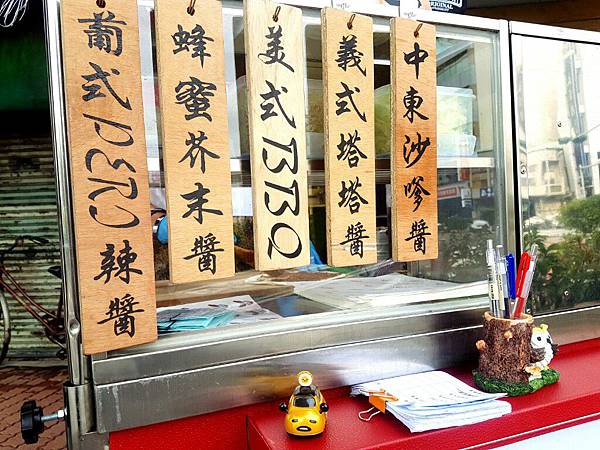 葡式PERI辣醬
蜂蜜芥末醬
美式BBQ醬
義式塔塔醬
中東沙嗲醬
ORIGINAL